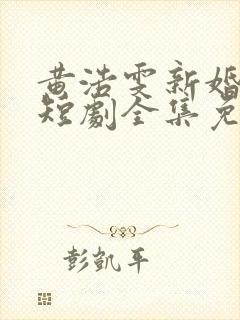 黄浩雯新婚
短劇全集免
彭凱平